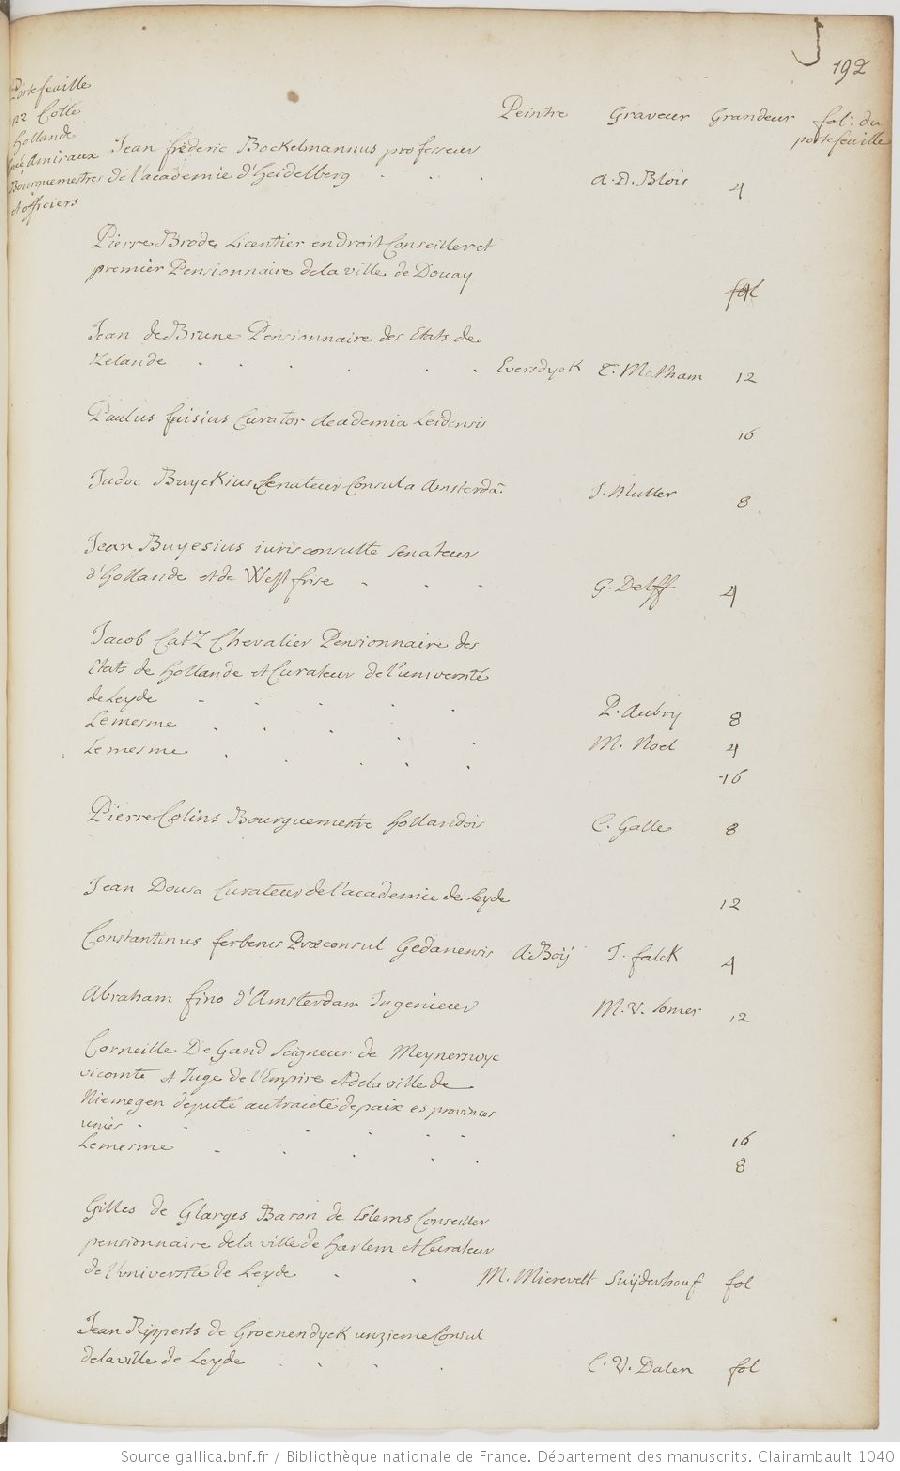 192
Portefeuille
122 Cotté
Hollande
Amiraux
Bourguemestres
et officiers
Peintre Graveur Grandeur fol. du
portefeuille
Jean frederic Bockelmannus professeur
de l'academie d'Heidelberg . . . A. D. Blois 4
Pierre Brode Licentier en droit Conseiller et
premier Pensionnaire de la ville de Douay
fol
Jean de Brune Pensionnaire des Etats de
Zelande . . . . . Eversdyck C. Melham 12
Paulus Curator Academia Leidensis
16
Judoc Buyckius Senateur Consul a Amsterdã. J. Muller 8
Jean Buyesius iurisconsulte Senateur
d'hollande et de Westfrise . . . G. Delff 4
Jacob Catz Chevalier Pensionnaire des
Etats de hollande et Curateur de l'université
de Leyde . . . . . P. Aubry 8
Le mesme . . . . . M. Noel 4
Le mesme . . . . 16
Pierre Colins Bourguemestre hollandois C. Galle 8
Jean Dousa Curateur de l'academie de Leyde
12
Constantinus ferberus Præconsul Gedanensis A Boÿ J. falck 4
Abraham fino d'Amsterdam Ingenieur M. V. Somer 12
Corneille De Gand Seigneur de Meynerswyc
vicomte et Juge de l'Empire et de la ville de
Niemegen deputé au traicté de paix es provinces
unies . . . . . 16
Le mesme . . . . . 8
Gilles de Glarges Baron de Eslems Conseiller
pensionnaire de la ville de harlem et Curateur
de l'université de Leyde . . M. Mierevelt Suijderhouf fol
Jean Ripperts de Groenendyck unzieme Consul
de la ville de Leyde . . . . C. V. Dalen fol
Source gallica.bnf.fr / Bibliothèque nationale de France. Département des manuscrits. Clairambault 1040